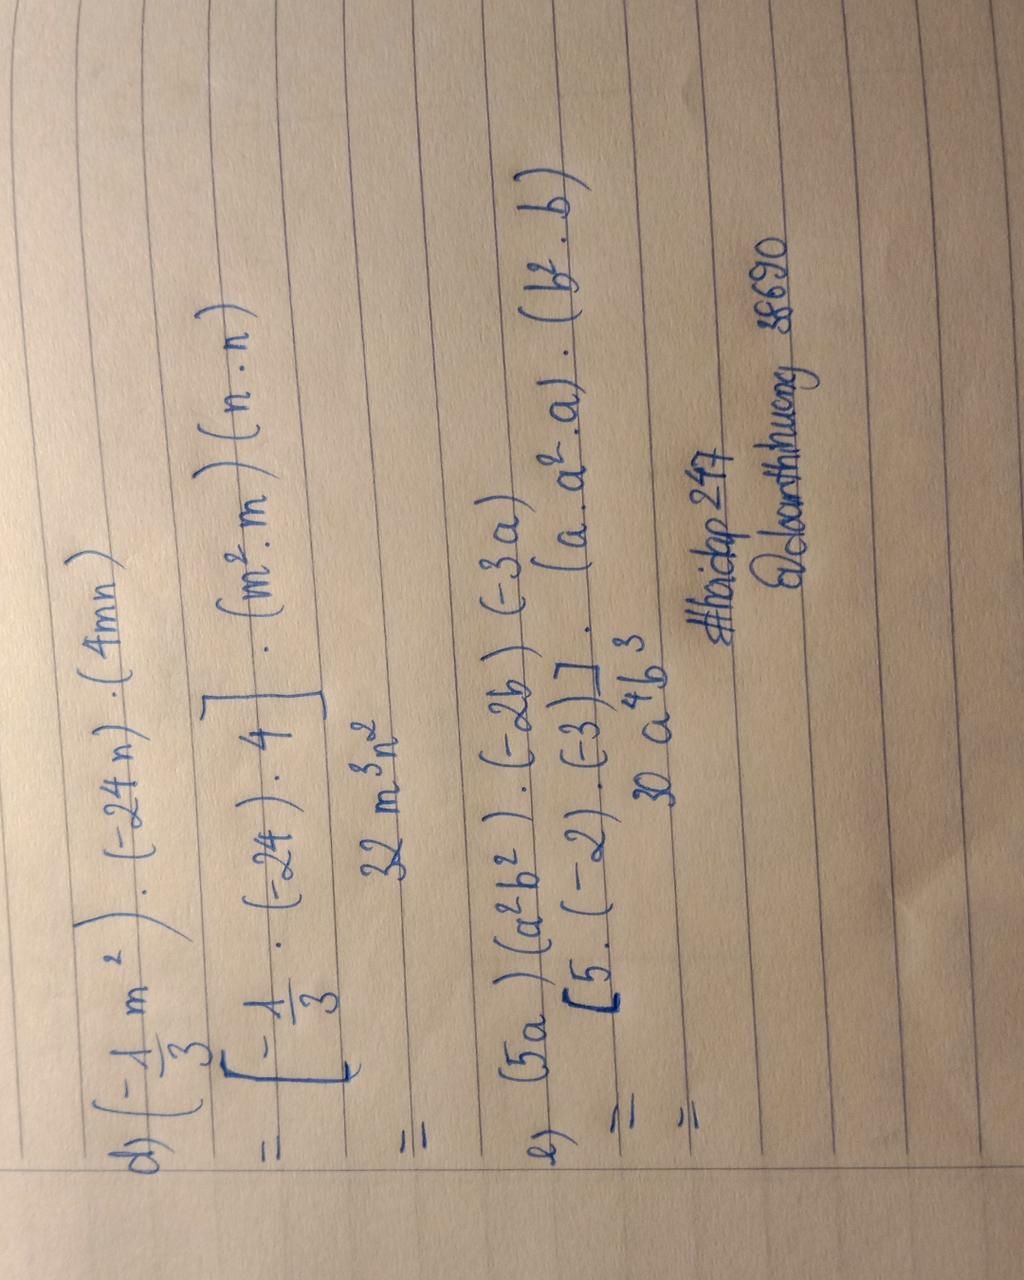 d) (-1/3 m²) . (-24n) . (4mn)
= [-1/3 . (-24) . 4] . (m² . m) (n . n)
= 32 m³n²
e) (5a) (a²b²) . (-2b) (-3a)
= [5 . (-2) . (-3)] . (a . a² . a) . (b² . b)
= 30 a⁴b³
#hoidap247
@doanthihuong38690